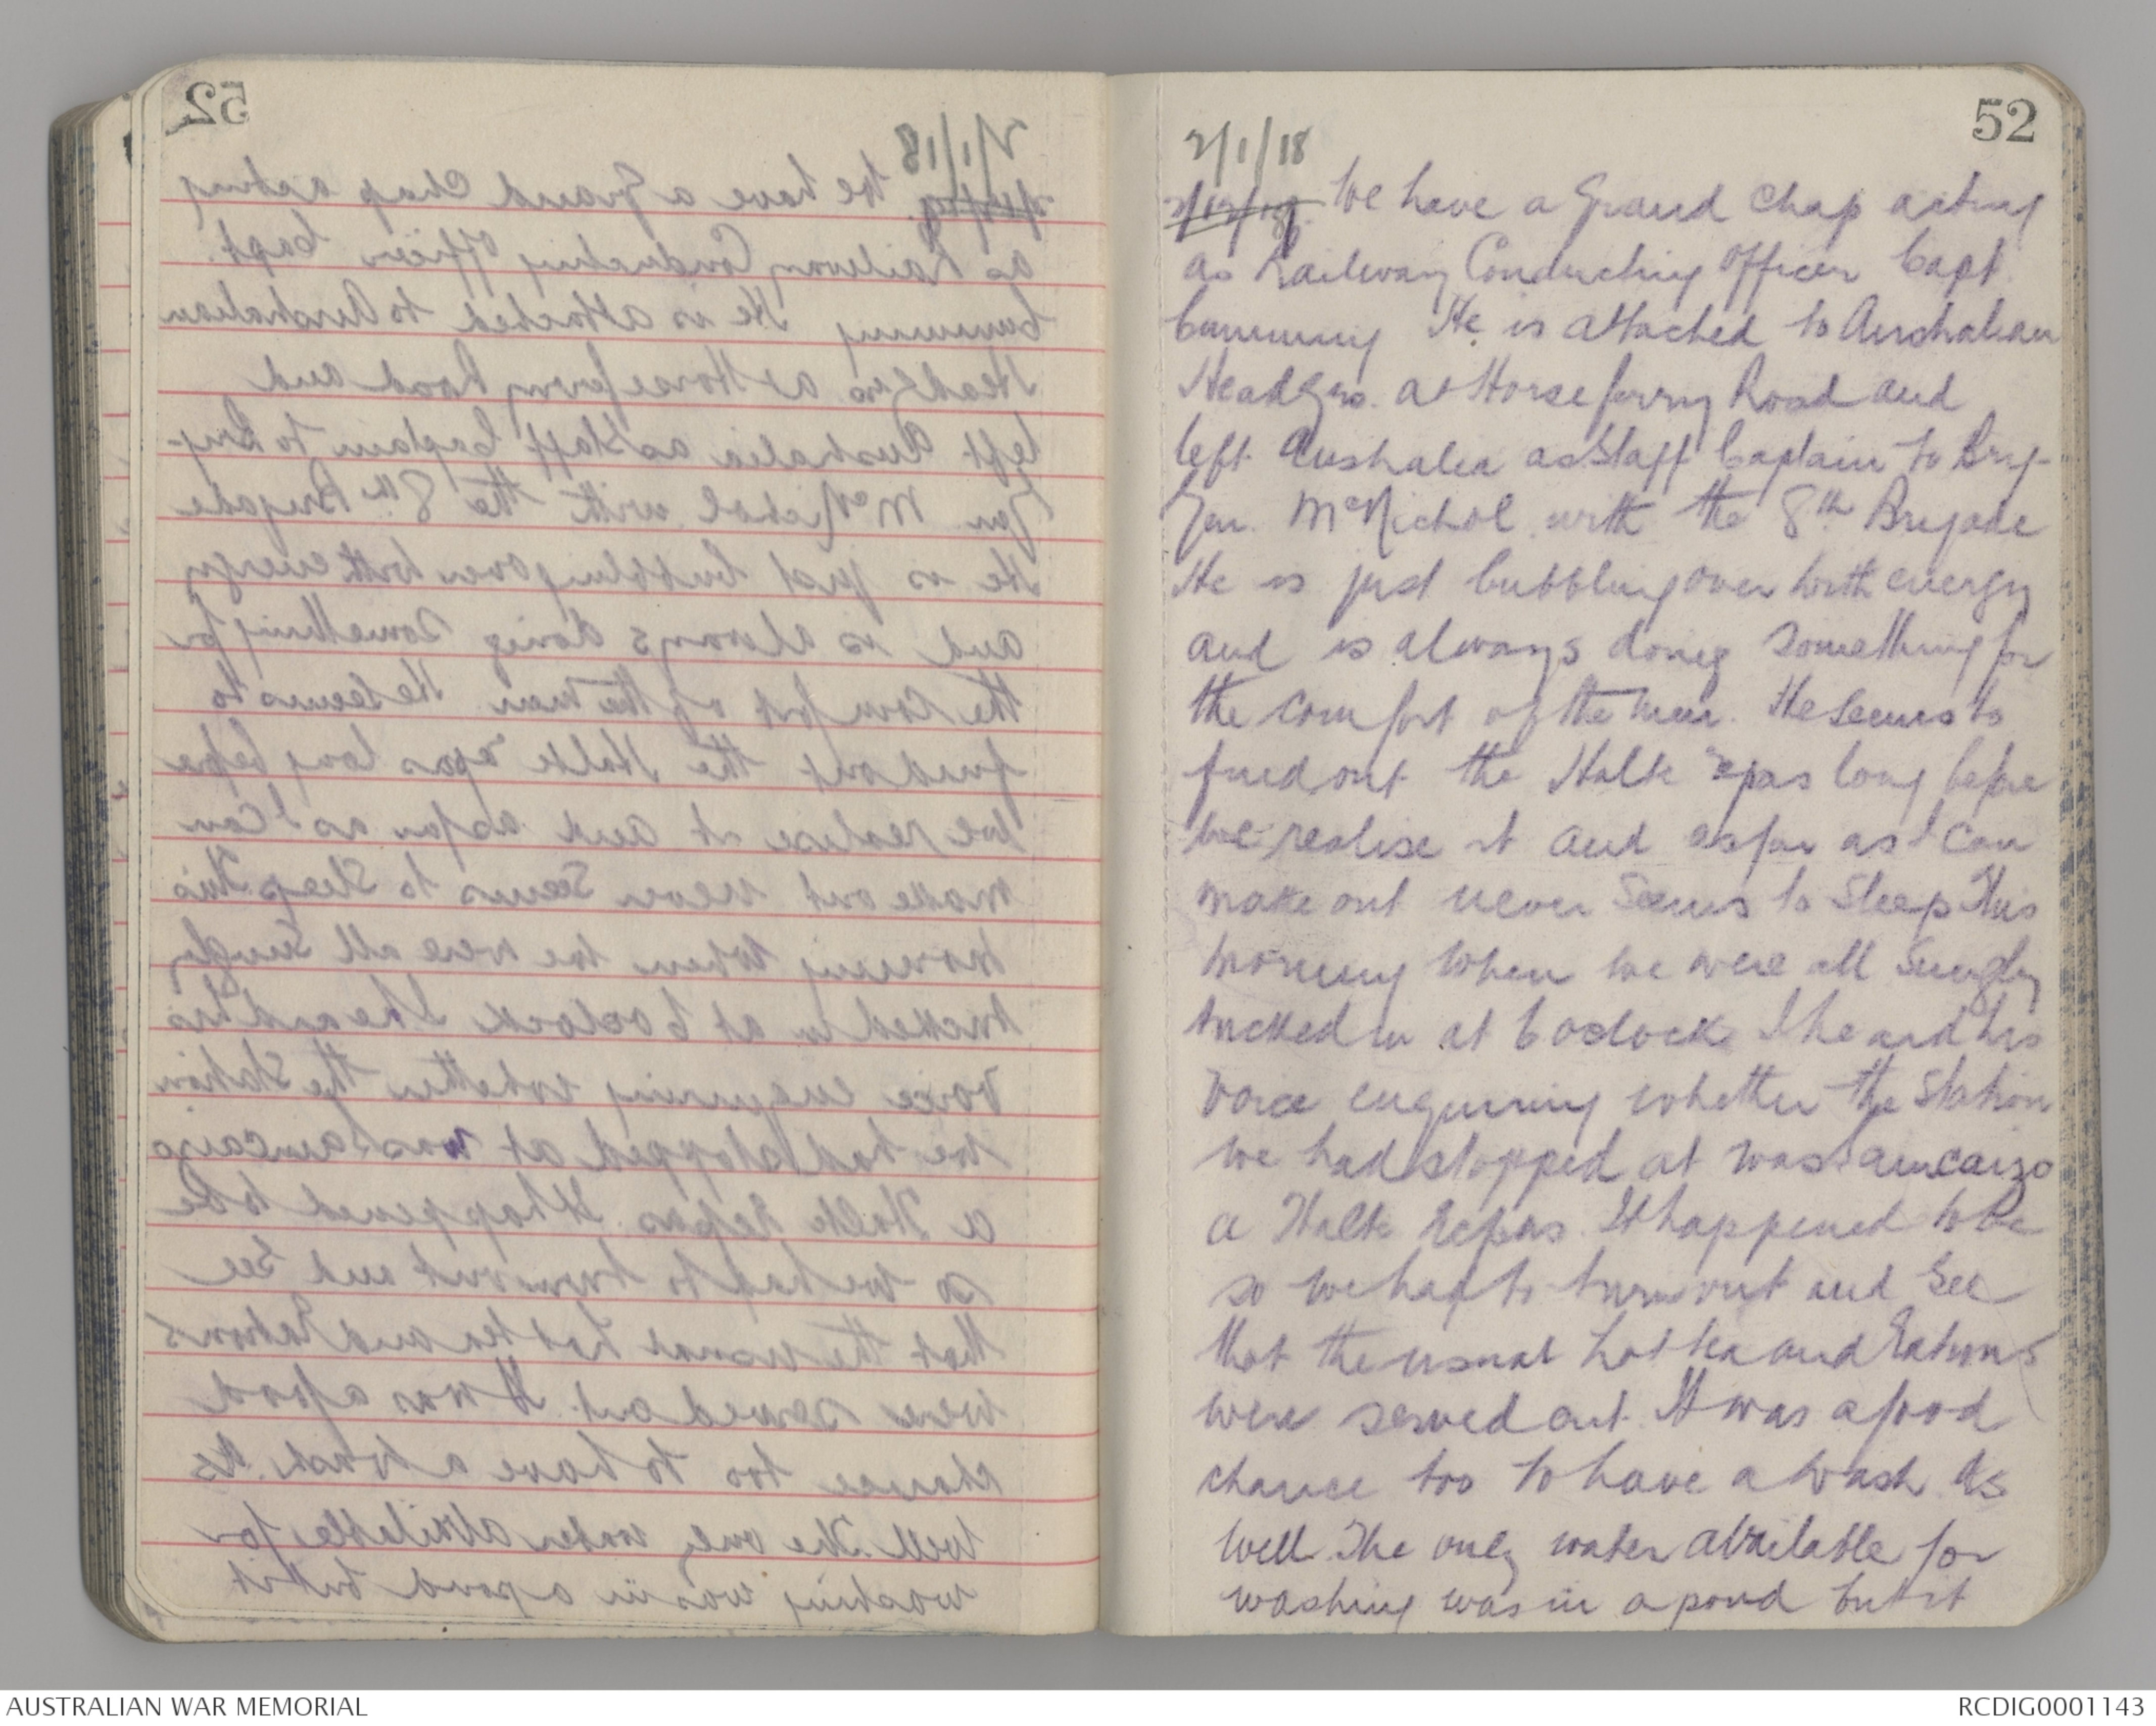 52
2/1/18
We have a grand chap acting
as Railway Conducting Officer Capt.
He is attached to Australian
Headqrs. at Horseferry Road and
left Australia as Staff Captain to Brig-
Gen. McNichol with the 8th Brigade
He is just bubbling over with energy
and is always doing something for
the comfort of the men. He seems to
find out the Halte repas long before
we realise it and as far as I can
make out never seems to sleep This
morning when we were all snugly
tucked in at 6 oclock I heard his
voice enquiring whether the Station
we had stopped at was
a Halte Repas. It happened to be
so we had to turn out and see
that the usual hot tea and rations
were served out. It was a good
chance too to have a wash as
well. The only water available for
washing was in a pond but it
AUSTRALIAN WAR MEMORIAL
RCDIG0001143